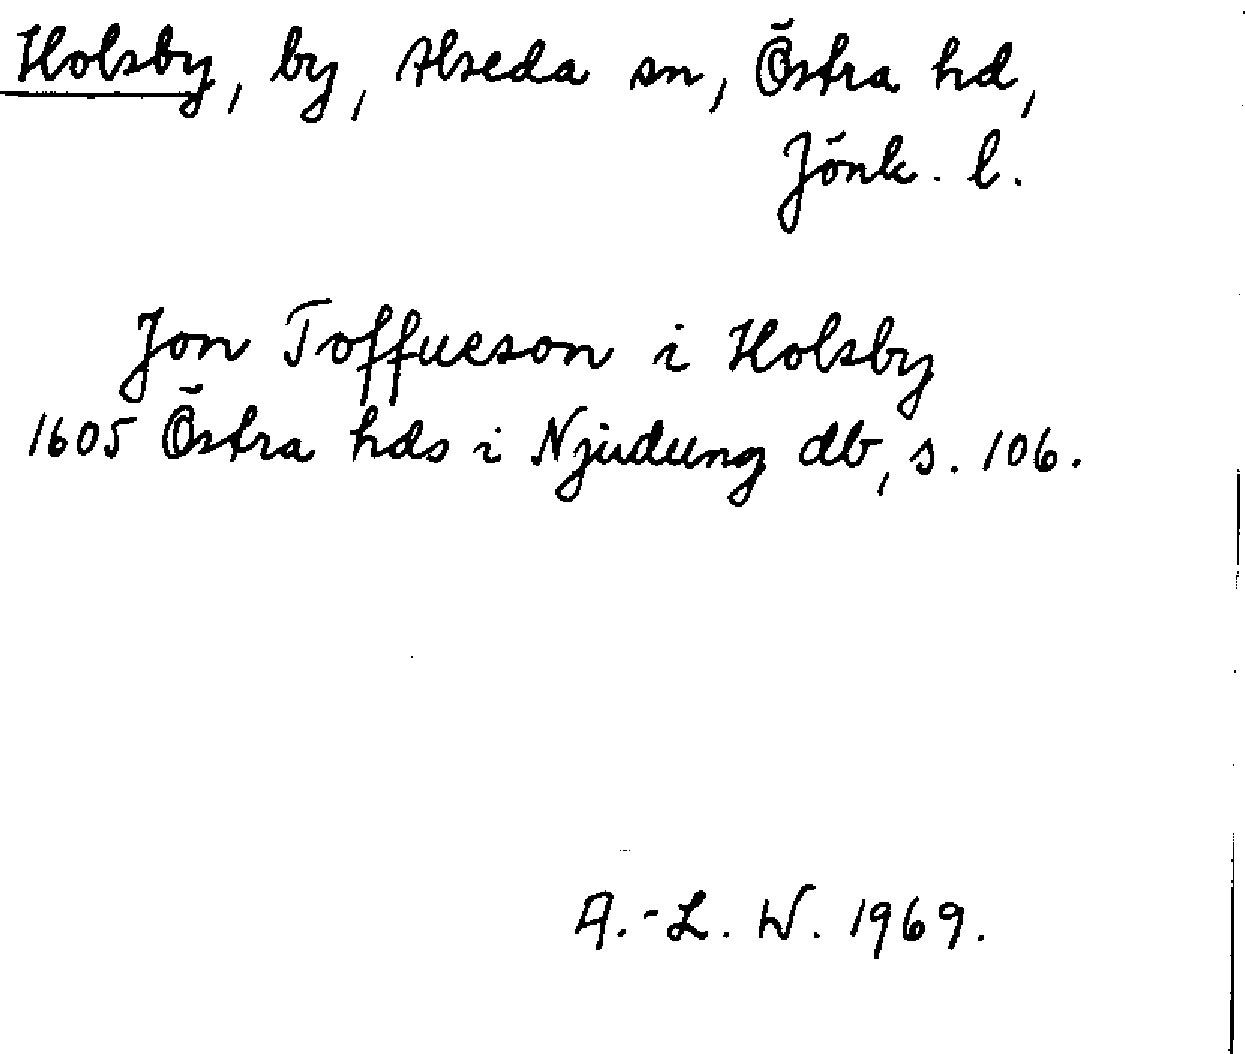 Holsby, by, Alseda sn, Östra hd,
Jönk. l.
Jon Toffueson i Holsby
1605 Östra hds i Njudung db, s. 106.
A.-L. W. 1969.